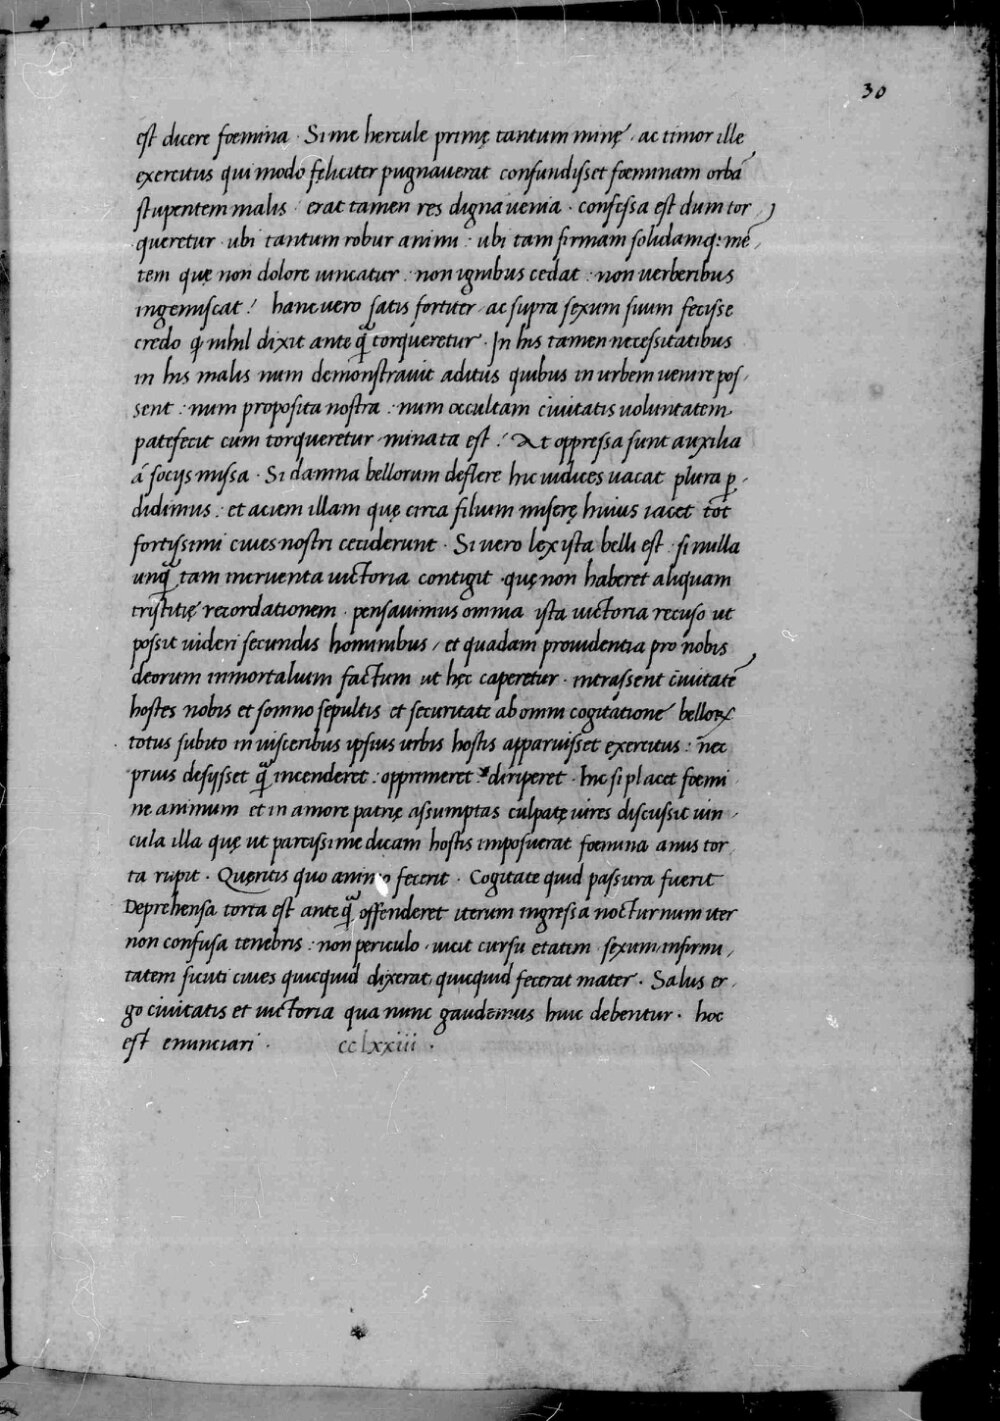 30
est dicere foemina · Si me hercule primę tantum minę · ac timor ille
exercitus qui modo fęliciter pugnauerat confundisset foeminam orbā
stupentem malis : erat tamen res digna uenia · confessa est dum tor
queretur · ubi tantum robur animi : ubi tam firmam solidamq: mē
tem quę non dolore uincatur : non ignibus cedat : non uerberibus
ingemiscat ? hanc uero satis fortiter ac supra sexum suum fecisse
credo ꝙ nihil dixit ante qᷓ torqueretur · In his tamen necessitatibus
in his malis num demonstrauit aditus quibus in urbem uenire pos
sent : num proposita nostra : num occultam ciuitatis uoluntatem
patefecit cum torqueretur minata est ? At oppressa sunt auxilia
á socijs missa · Si damna bellorum deflere hic iudices uacat plura ꝑ
didimus : et aciem illam quę circa filium miserę huius iacet tot
fortissimi ciues nostri ceciderunt · Si uero lex ista belli est : si nulla
unqᷓ tam incruenta uictoria contigit · quę non haberet aliquam
tristitię recordationem · pensauimus omnia ista uictoria recuso ut
possit uideri secundis hominibus / et quadam prouidentia pro nobis
deorum immortalium factum ut hęc caperetur · intrassent ciuitatē
hostes nobis et somno sepultis et securitate ab omni cogitatione belloꝝ
totus subito in uisceribus ipsius urbis hostis apparuisset exercitus : nec
prius desijsset qᷓ incenderet : opprimeret : diriperet · Hic si placet foemi
ne animum et in amore patrię assumptas culpatę uires discussit uin
cula illa quę ut parcissime dicam hostis imposuerat foemina anus tor
ta rupit · Quęritis quo animo fecerit · Cogitate quid passura fuerit
Deprehensa torta est ante qᷓ offenderet iterum ingressa nocturnum iter
non confusa tenebris : non periculo · uicit cursu etatem sexum infirmi
tatem sicuti ciues quicquid dixerat quicquid fecerat mater · Salus er
go ciuitatis et uictoria qua nunc gaudemus huic debentur · hoc
est enunciari · cclxxiii ·